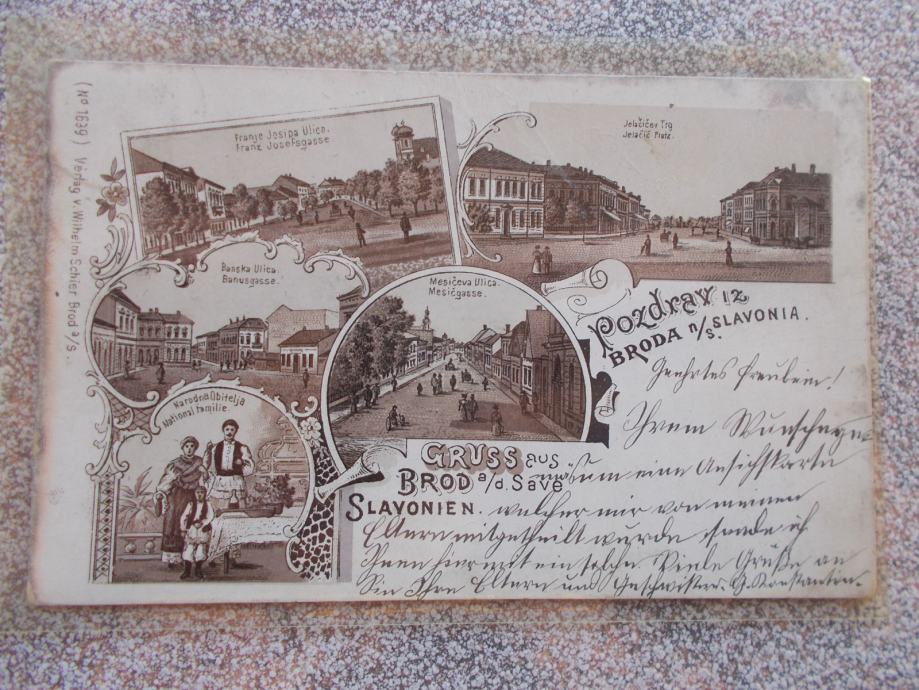 (No 7639) Verlag v. Wilhelm Schier Brod a/s.
Franje Josipa Ulica.
Franz Josefsgasse.
Jelačićev Trg
Jelačič Platz.
Banska Ulica.
Banusgasse.
Mesičeva Ulica.
Mesičgasse.
Narodna Obitelja
National familie.
Pozdrav iz
BRODA n/S. SLAVONIA.
GRUSS aus
BROD a/d. Save
SLAVONIEN.
Geehrtes Freulein!
Ihrem Wunsche
um eine Ansichtkarte
welcher mir von meinen
Eltern mitgetheilt wurde sende ich
Ihnen hiermit ein solche Viele Grüße an
Sie Ihre Eltern und Geschwister. G. Konstantin.